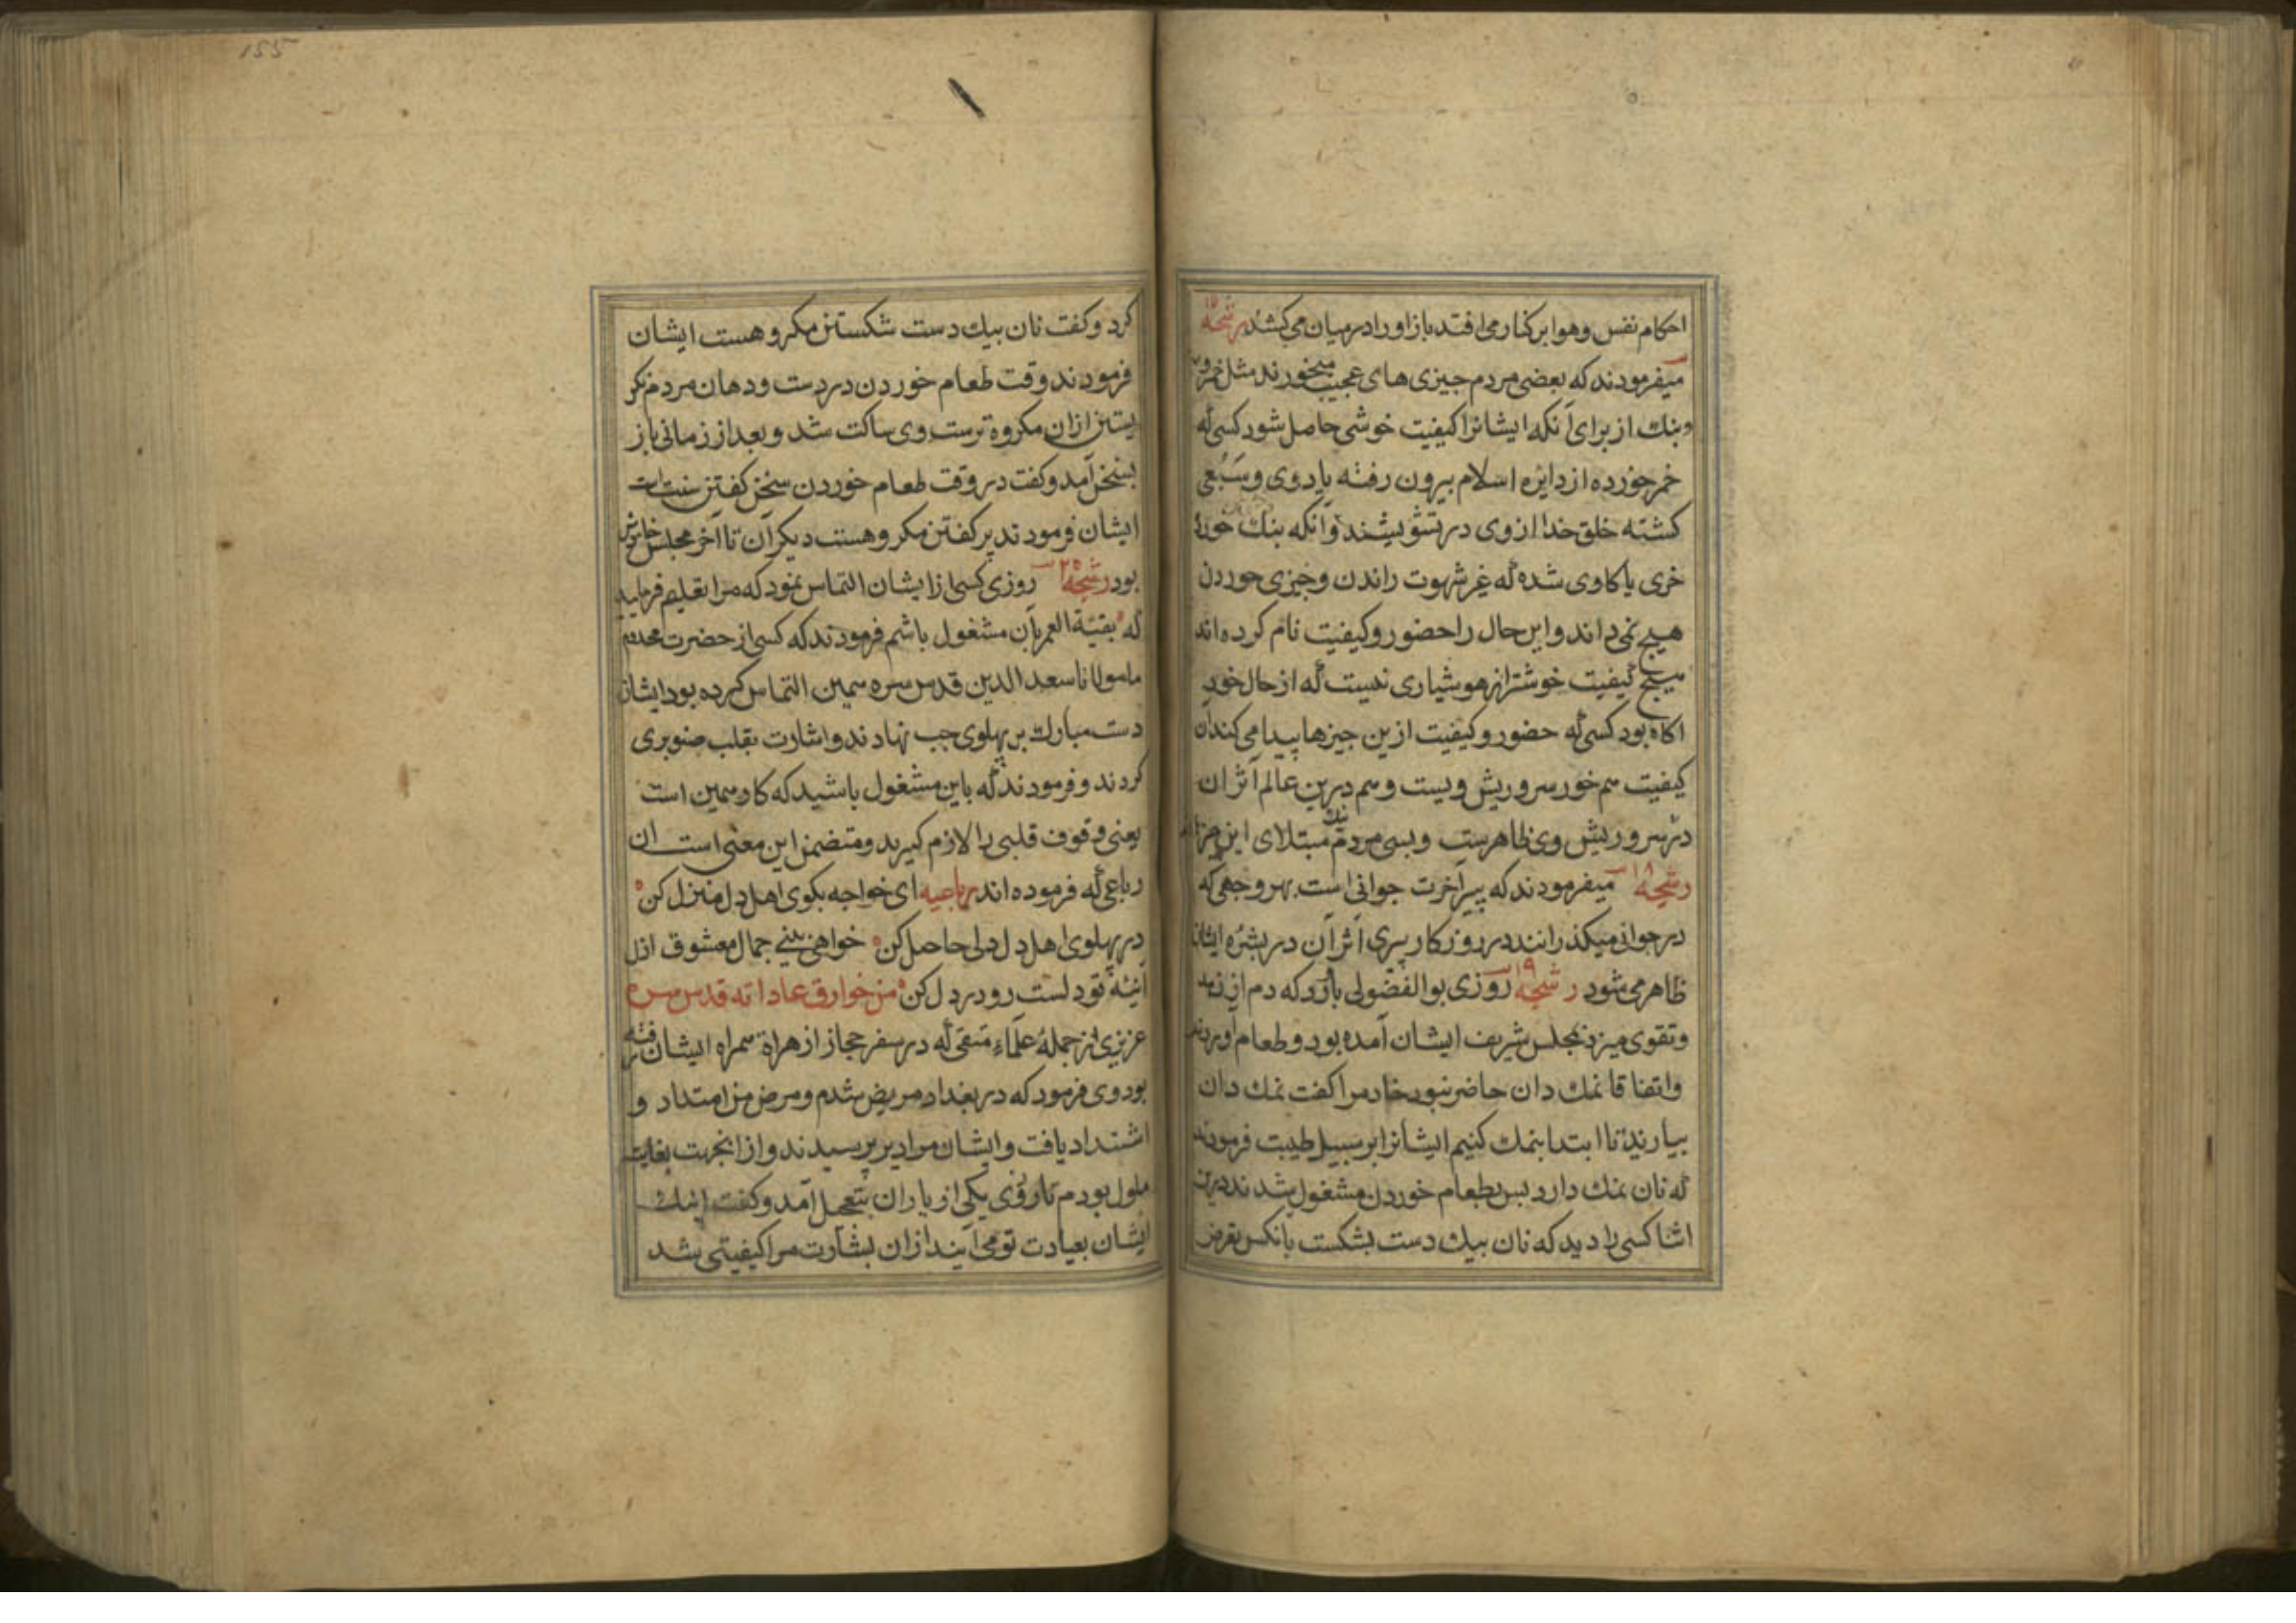 احکام نفس وهوا بر کنار می افتد باز اورا در میان می کشد رشحه ۱۷
میفرمودند که بعضی مردم جیزی های عجیب میخورند مثل خمر
وبنك از برای آنکه ایشانرا کیفیت خوشی حاصل شود کسی که
خمر خورده از دایره اسلام بیرون رفته یا دوی وسبعی
کشته خلق خدا از وی در تشویشند وآنکه بنك خورد
خری یا کاوی شده که غیر شهوت راندن وجیزی خوردن
هیج نمی داند واین حال را حضور وکیفیت نام کرده اند
هیج کیفیت خوشتر از هوشیاری نیست که از حال خود
اکاه بود کسی که حضور وکیفیت ازین جیزها پیدا می کند آن
کیفیت هم خور سر وریش ویست وهم درین عالم اثر آن
در سر وریش وی ظاهرست وبسی مردم نیك مبتلای این
رشحه ۱۸ میفرمودند که پیر آخرت جوانی است بهر وجهی که
در جوانی میکذرانند در روزکار پیری اثر آن در بشره ایشان
ظاهر می شود رشحه ۱۹ روزی بوالفضولی بارو که دم از زهد
وتقوی میزد بمجلس شریف ایشان آمده بود وطعام اوردند
واتفاقا نمك دان حاضر نبود خادم را کفت نمك دان
بیارید تا ابتدا بنمك کنیم ایشان بر سبیل طیبت فرمودند
که نان نمك دارد بس بطعام خوردن مشغول شدند درین
اثنا کسی را دید که نان بیك دست بشکست بانکس تعرض
155
کرد وکفت نان بیك دست شکستن مکروهست ایشان
فرمودند وقت طعام خوردن در دست ودهان مردم نکر
یستن ازان مکروه ترست وی ساکت شد وبعد از زمانی باز
بسخن آمد وکفت در وقت طعام خوردن سخن کفتن سنت است
ایشان فرمودند پر کفتن مکروهست دیکر آن تا آخر مجلس خاموش
بود رشحه ۲۰ روزی کسی از ایشان التماس نمود که مرا تعلیم فرمایید
که بقیة العمر بآن مشغول باشم فرمودند که کسی از حضرت مخدوم
ما مولانا سعد الدین قدس سره همین التماس کرده بود ایشان
دست مبارك بر پهلوی جب نهادند واشارت بقلب صنوبری
کردند وفرمودند که باین مشغول باشید که کار همین است
یعنی وقوف قلبی را لازم کیرید ومتضمن این معنی است آن
رباعی که فرموده اند رباعیه ای خواجه بکوی اهل دل منزل کن
در پهلوی اهل دل دلی حاصل کن خواهی بینی جمال معشوق ازل
آینۀ تو دلست رو در دل کن من خوارق عاداته قدس سره
عزیزی از جملۀ علماء متقی که در سفر حجاز از هراة همراه ایشان رفته
بود وی فرمود که در بغداد مریض شدم ومرض من امتداد و
اشتداد یافت وایشان مرا دیر پرسیدند واز انجهت بغایت
ملول بودم تا روزی یکی از یاران بتعجل آمد وکفت اینك
ایشان بعیادت تو می آیند ازان بشارت مرا کیفیتی شد